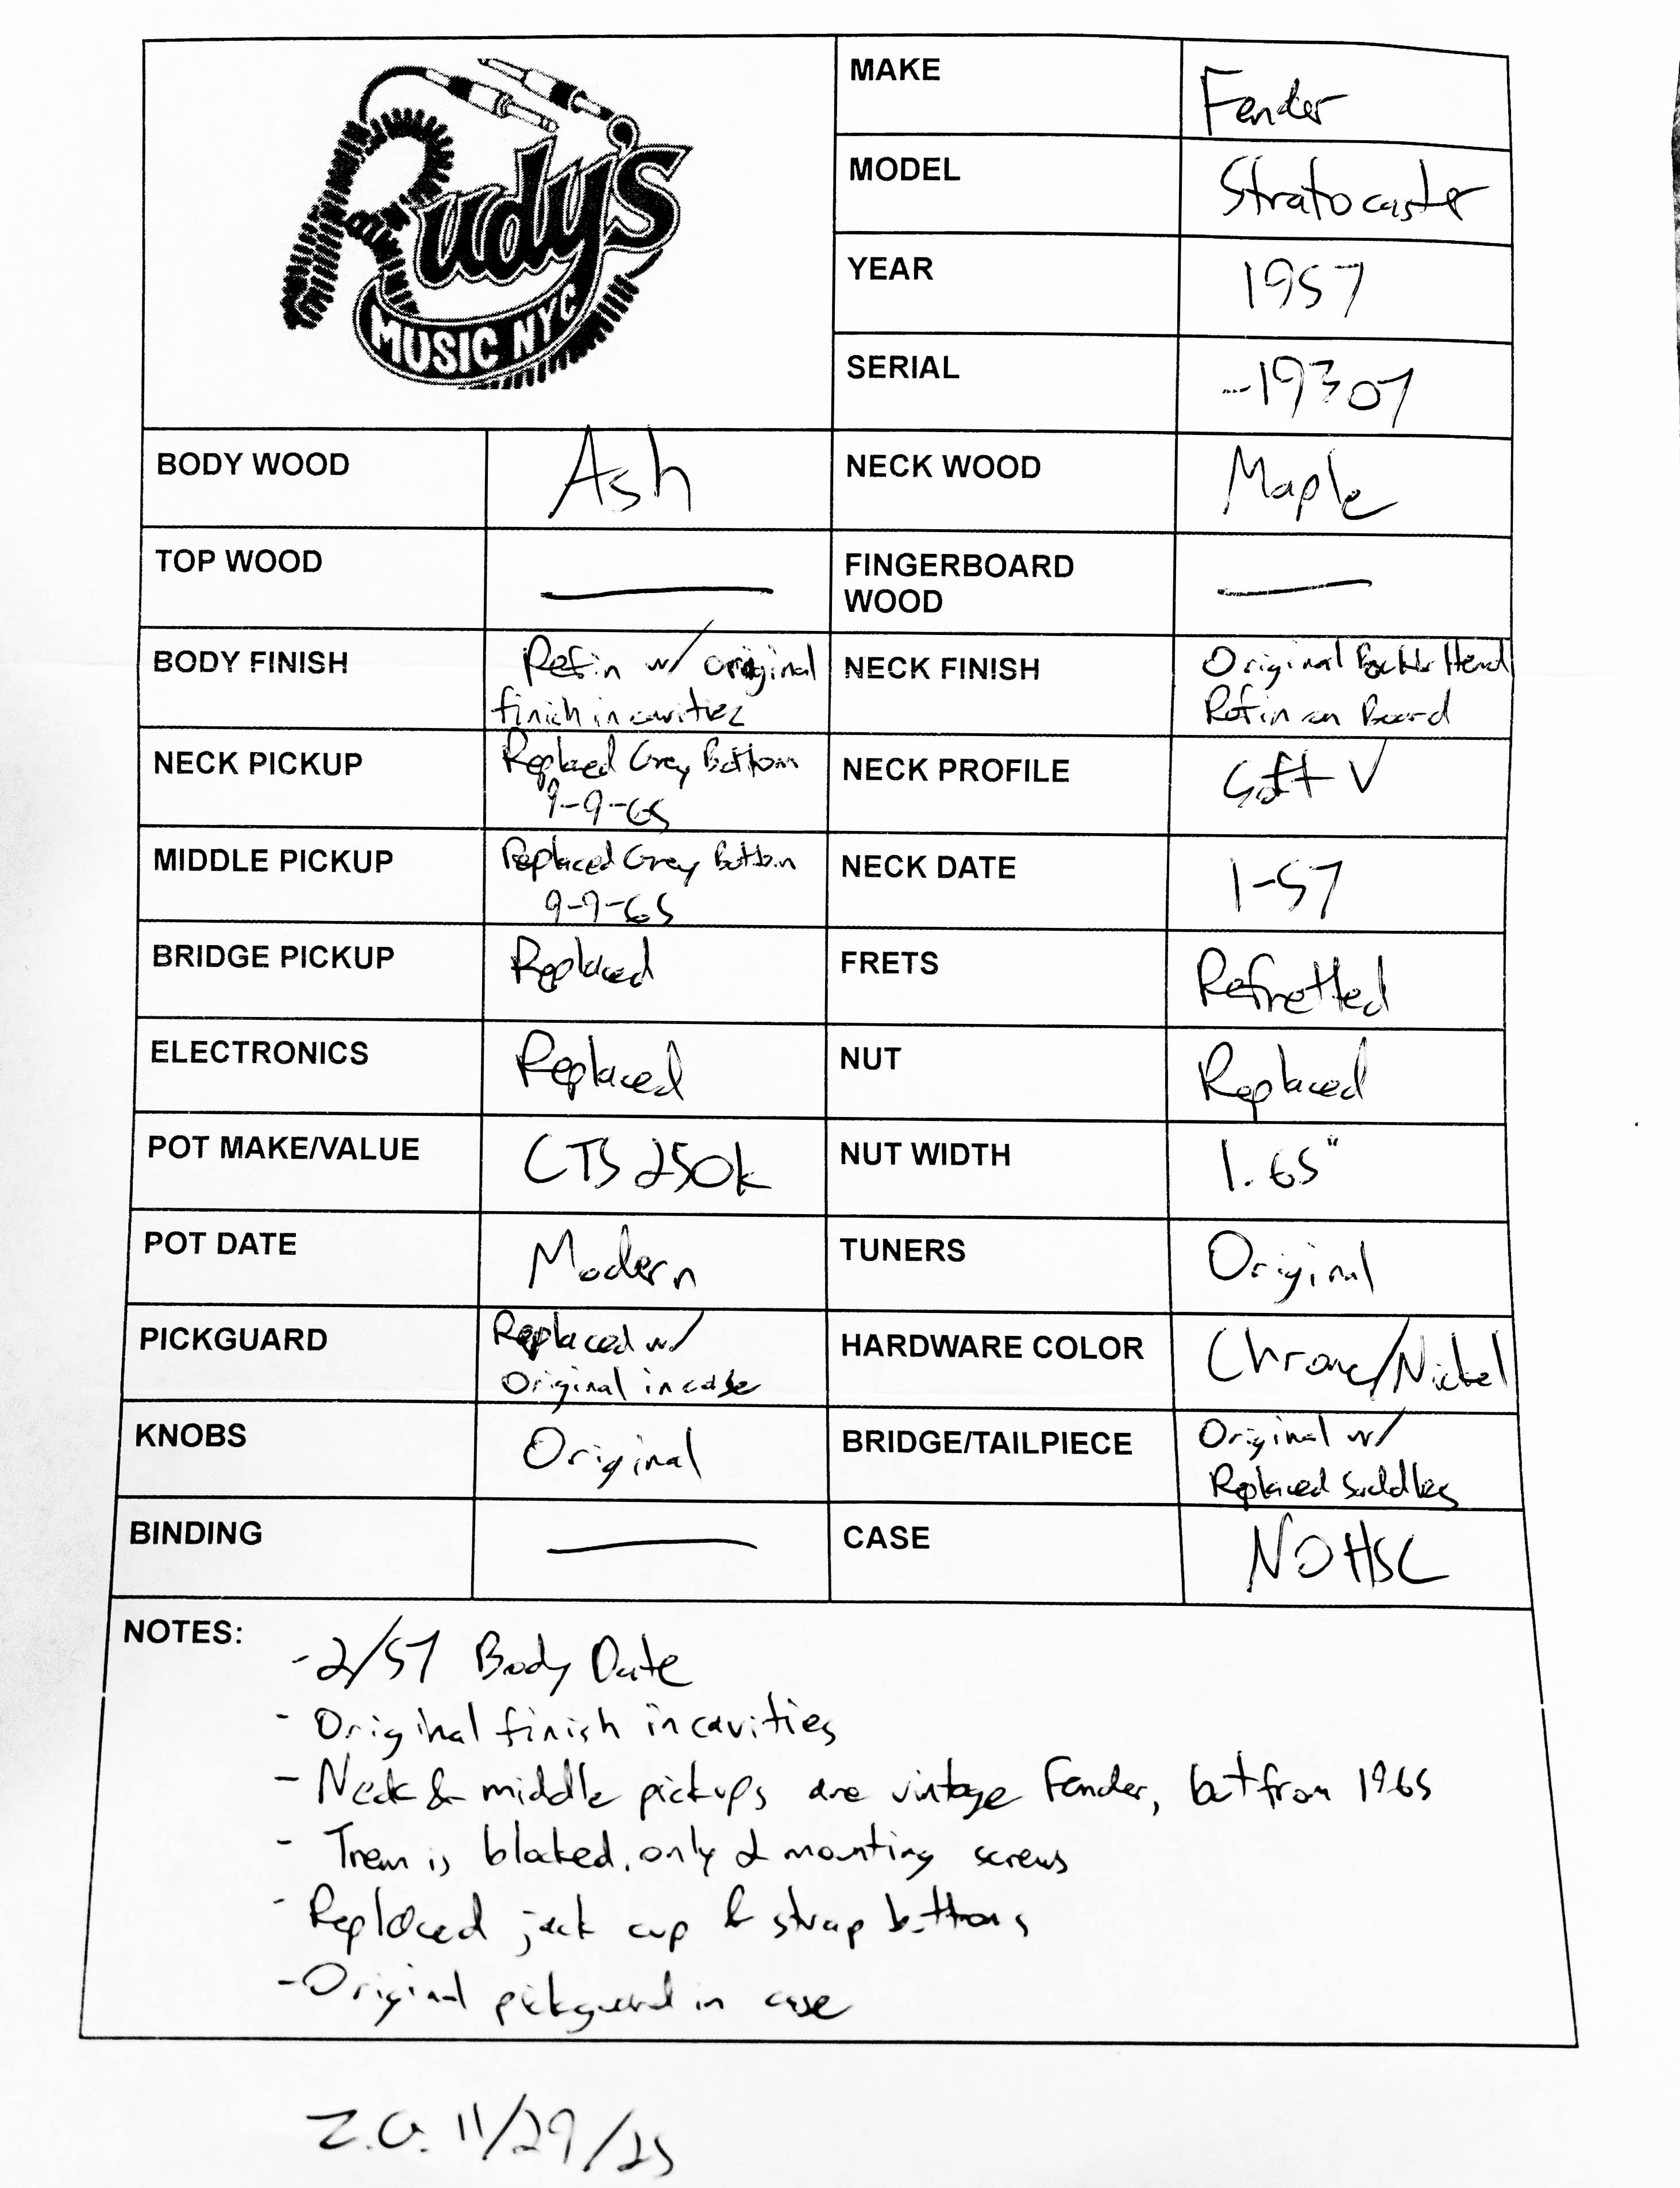 Rudy's
MUSIC NYC
MAKE Fender
MODEL Stratocaster
YEAR 1957
SERIAL -19307
BODY WOOD Ash NECK WOOD Maple
TOP WOOD — FINGERBOARD
WOOD —
BODY FINISH Refin w/ original
finish in cavities
NECK FINISH Original Back & Head
Refin on Board
NECK PICKUP Replaced Grey Bottom
9-9-65
NECK PROFILE Soft V
MIDDLE PICKUP Replaced Grey Bottom
9-9-65
NECK DATE 1-57
BRIDGE PICKUP Replaced FRETS Refretted
ELECTRONICS Replaced NUT Replaced
POT MAKE/VALUE CTS 250k NUT WIDTH 1.65"
POT DATE Modern TUNERS Original
PICKGUARD Replaced w/
Original in case
HARDWARE COLOR Chrome/Nickel
KNOBS Original BRIDGE/TAILPIECE Original w/
Replaced Saddles
BINDING — CASE NOHSC
NOTES:
-2/57 Body Date
- Original finish in cavities
- Neck & middle pickups are vintage Fender, but from 1965
- Trem is blocked, only 2 mounting screws
- Replaced jack cup & strap buttons
- Original pickguard in case
Z.G. 11/29/25